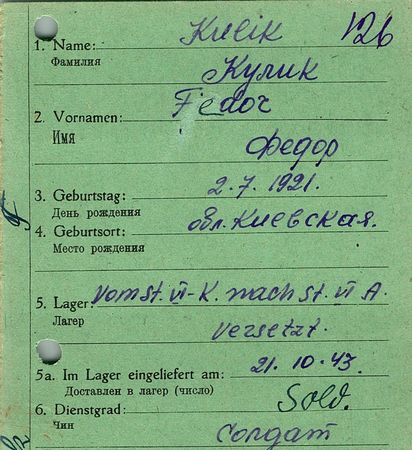 Kulik 126
1. Name:
Фамилия
Кулик
Fedor
2. Vornamen:
Имя
Федор
3. Geburtstag: 2. 7. 1921.
День рождения
4. Geburtsort: обл. Киевская.
Место рождения
5. Lager: Vom St. VI-K. nach St. VI A.
Лагерь
versetzt.
5a. Im Lager eingeliefert am: 21. 10. 43
Доставлен в лагер (число)
6. Dienstgrad: Sold.
Чин
Солдат